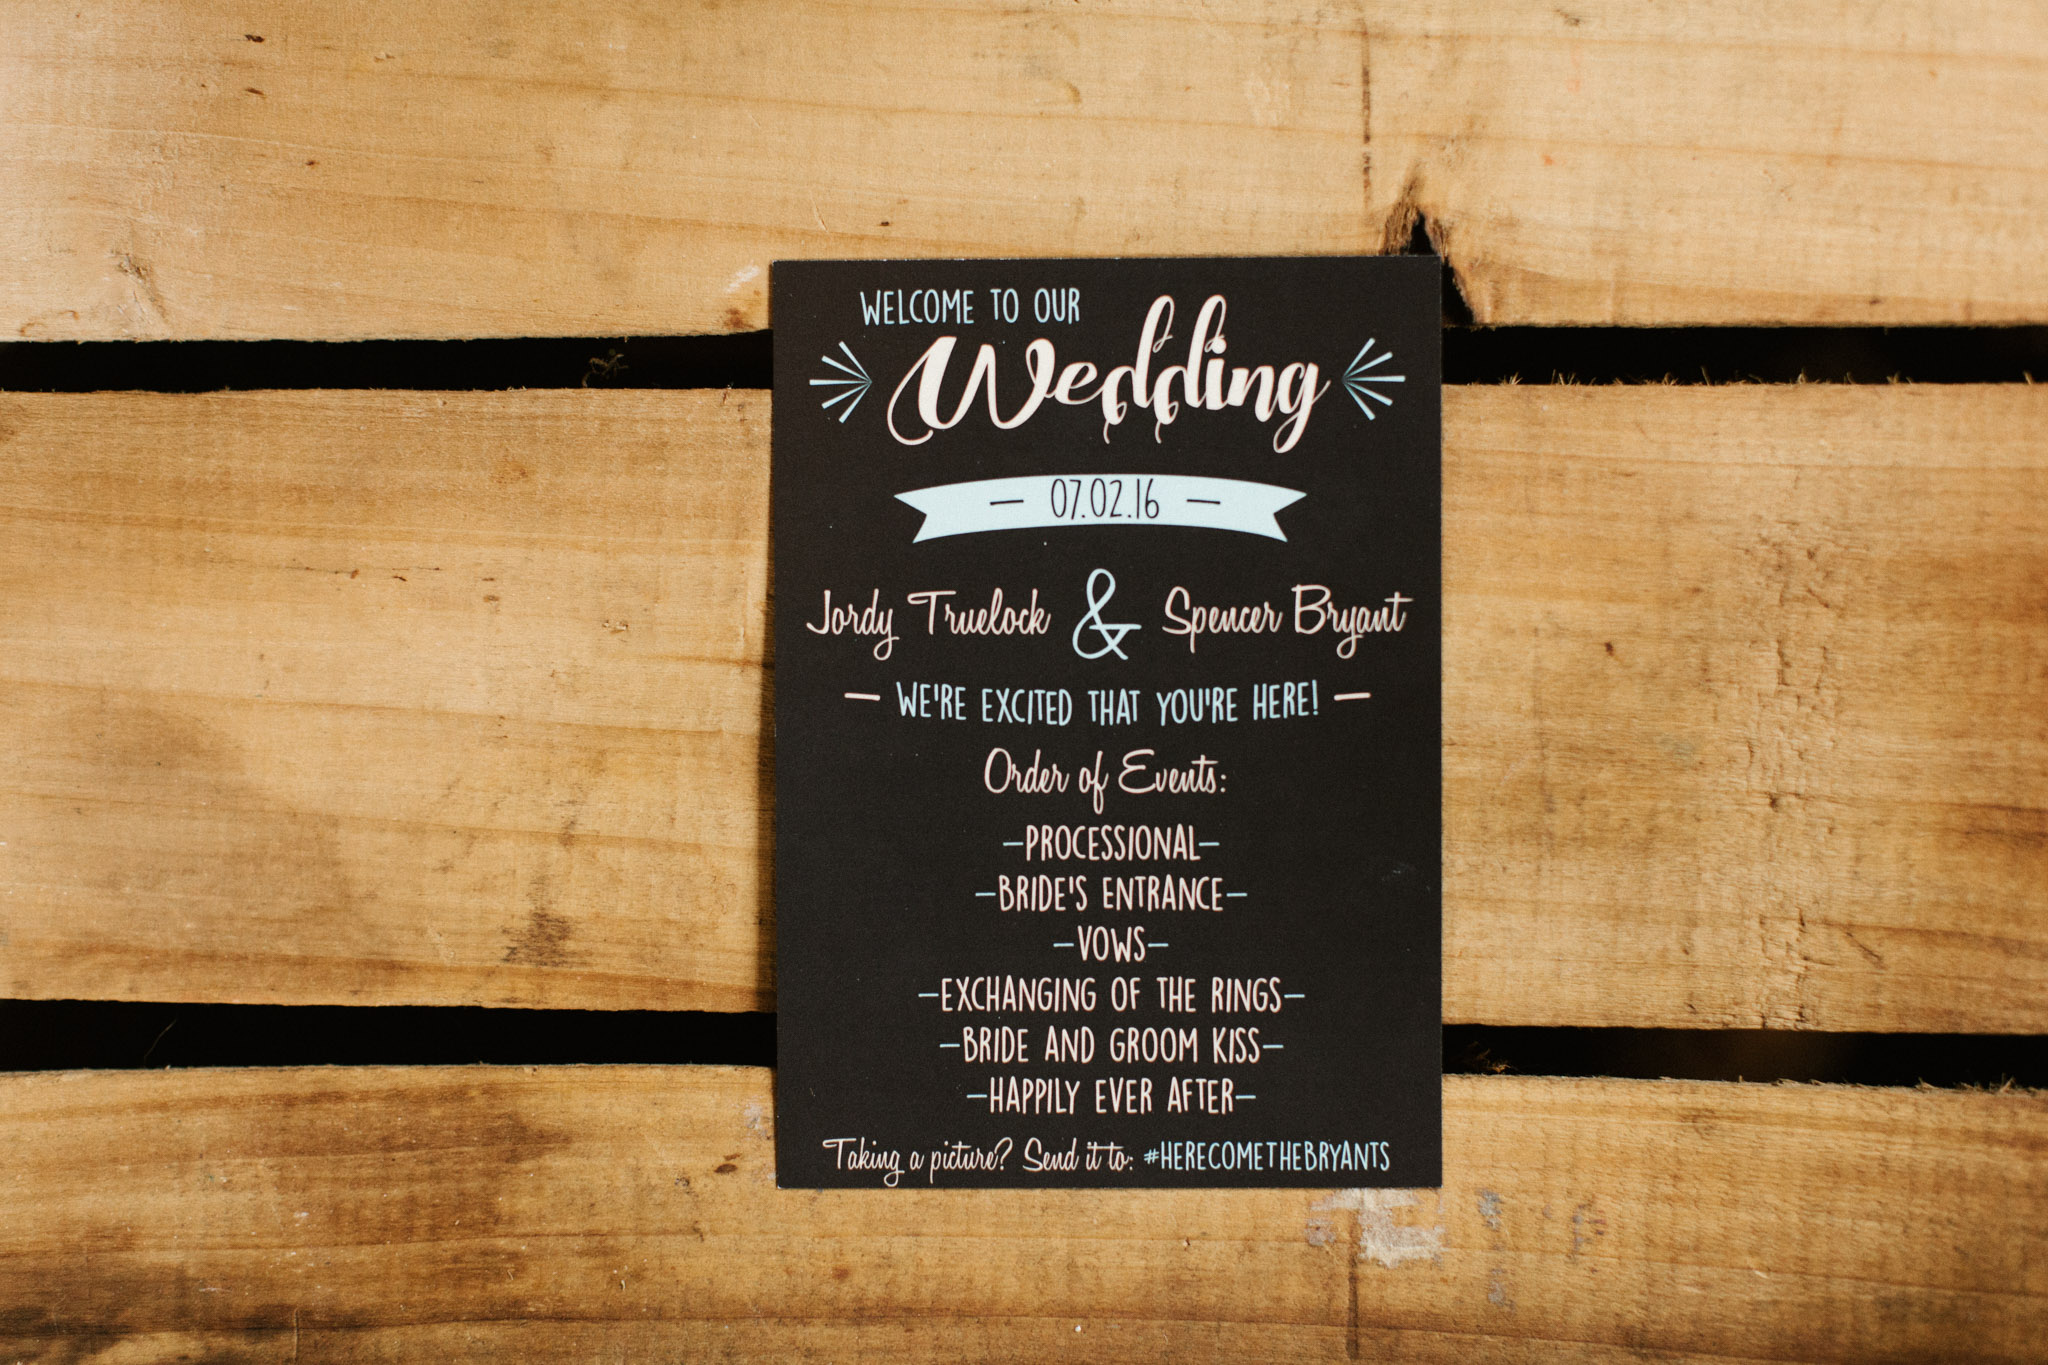 WELCOME TO OUR
Wedding
— 07.02.16 —
Jordy Truelock & Spencer Bryant
— WE'RE EXCITED THAT YOU'RE HERE! —
Order of Events:
—PROCESSIONAL—
—BRIDE'S ENTRANCE—
—VOWS—
—EXCHANGING OF THE RINGS—
—BRIDE AND GROOM KISS—
—HAPPILY EVER AFTER—
Taking a picture? Send it to: #HERECOMETHEBRYANTS